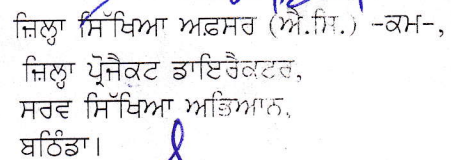 ਜ਼ਿਲ੍ਹਾ ਸਿੱਖਿਆ ਅਫ਼ਸਰ (ਐ.ਸਿ.) -ਕਮ-,
ਜ਼ਿਲ੍ਹਾ ਪ੍ਰੋਜੈਕਟ ਡਾਇਰੈਕਟਰ,
ਸਰਵ ਸਿੱਖਿਆ ਅਭਿਆਨ,
ਬਠਿੰਡਾ।